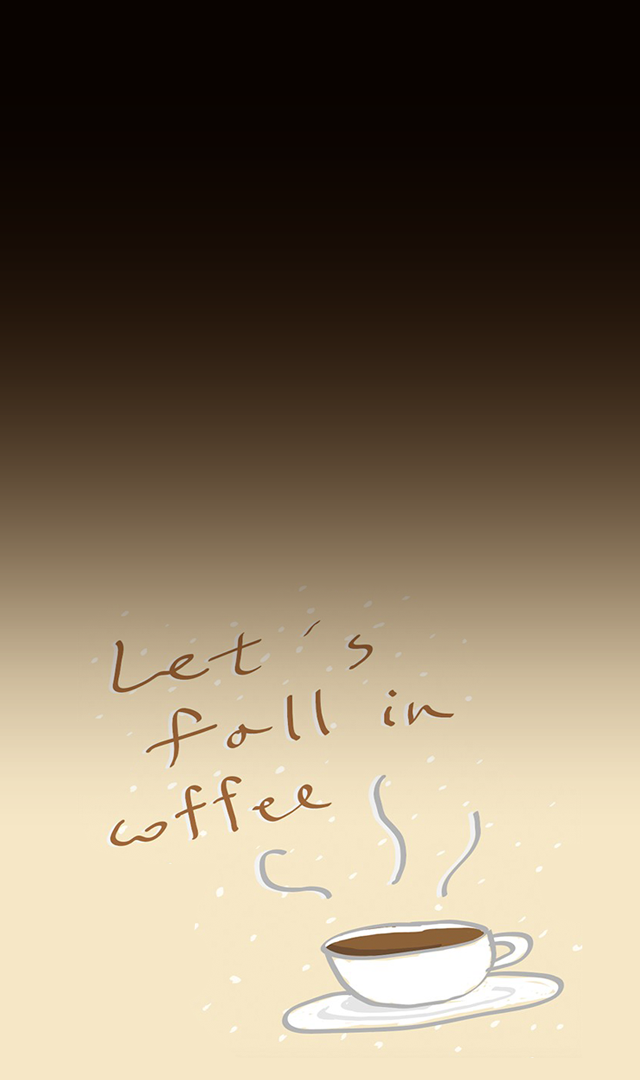 Let's
fall in
coffee